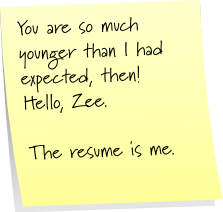 You are so much
younger than I had
expected, then!
Hello, Zee.
The resume is me.